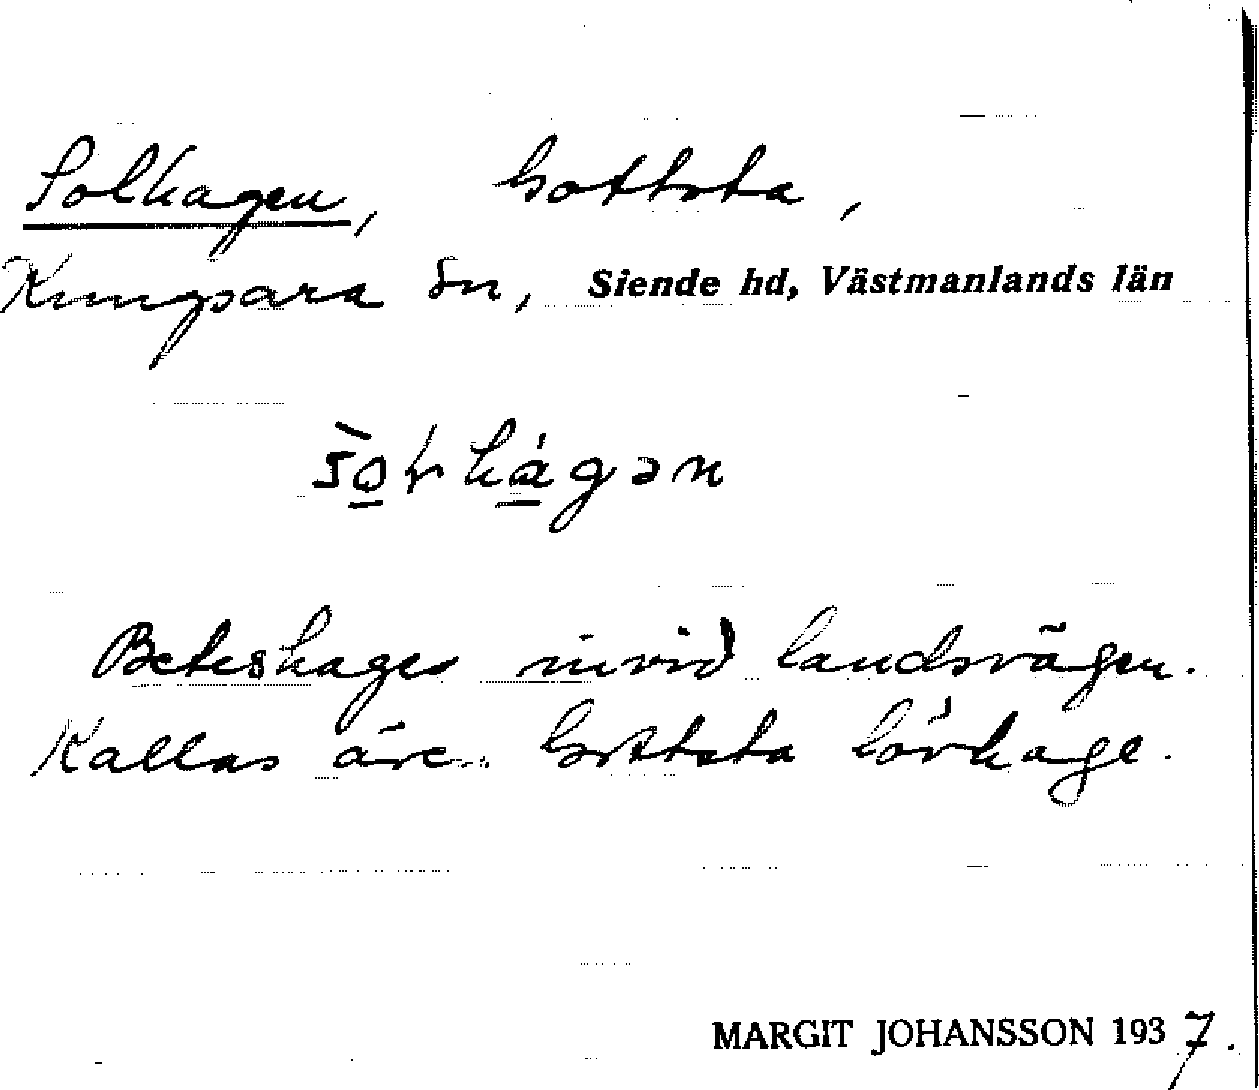 Solhagen, Gottsta,
Kungsara sn, Siende hd, Västmanlands län
Beteshage invid landsvägen.
Kallas även Gottsta lövhage.
MARGIT JOHANSSON 1937.